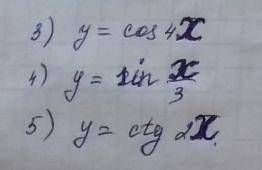 3) y = cos 4x
4) y = sin x/3
5) y = ctg 2x.